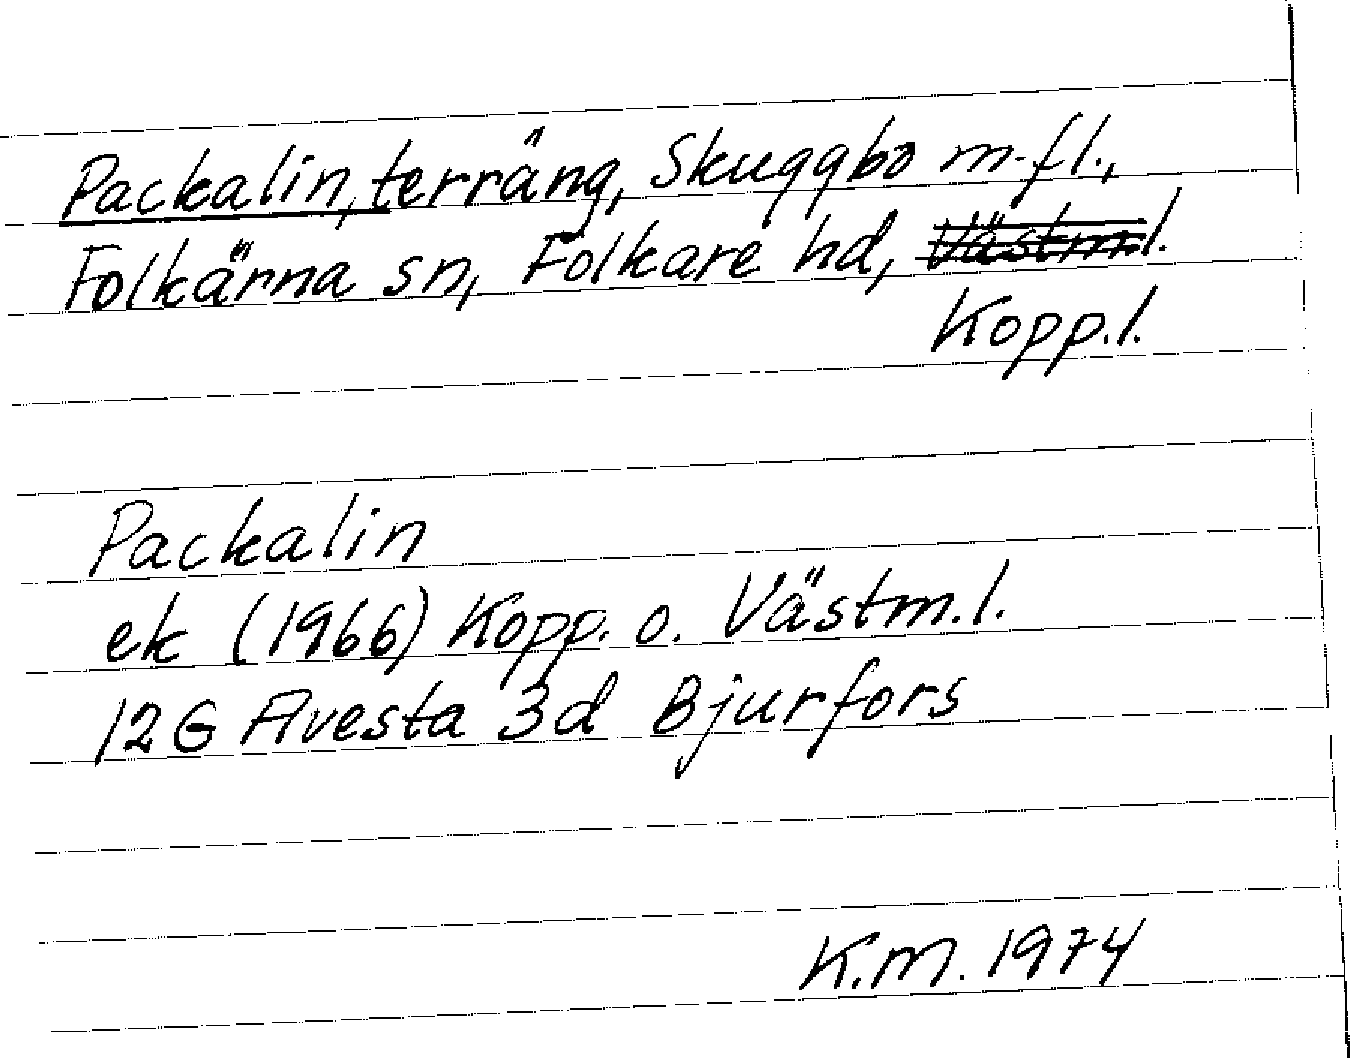 Packalin, terräng, Skuggbo m.fl.,
Folkärna sn, Folkare hd, Västm.l.
Kopp.l.
Packalin
ek (1966) Kopp. o. Västm.l.
12G Avesta 3d Bjurfors
K.M. 1974